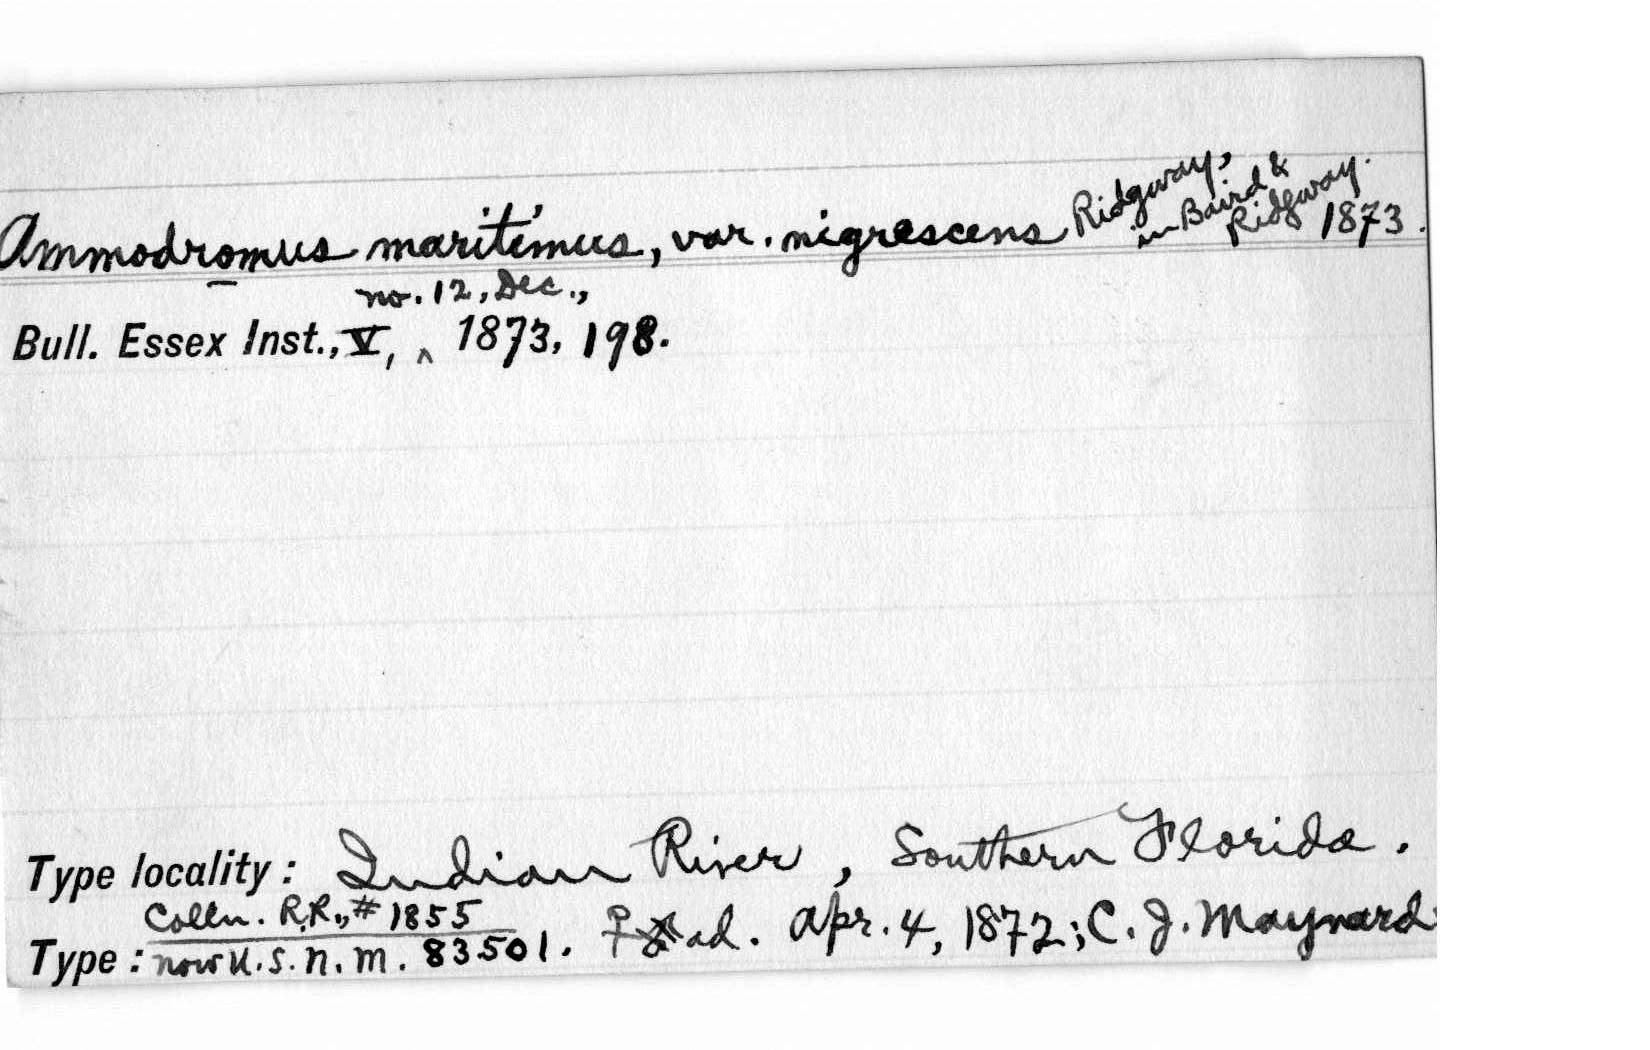 Ammodromus maritimus, var. nigrescens Ridgway, in Baird & Ridgway. 1873.
no. 12, Dec.,
Bull. Essex Inst., V, ^ 1873, 198.
Type locality: Indian River, Southern Florida.
Colln. R.R., # 1855
Type: now U.S.N.M. 83501. ♀ ad. Apr. 4, 1872; C. J. Maynard